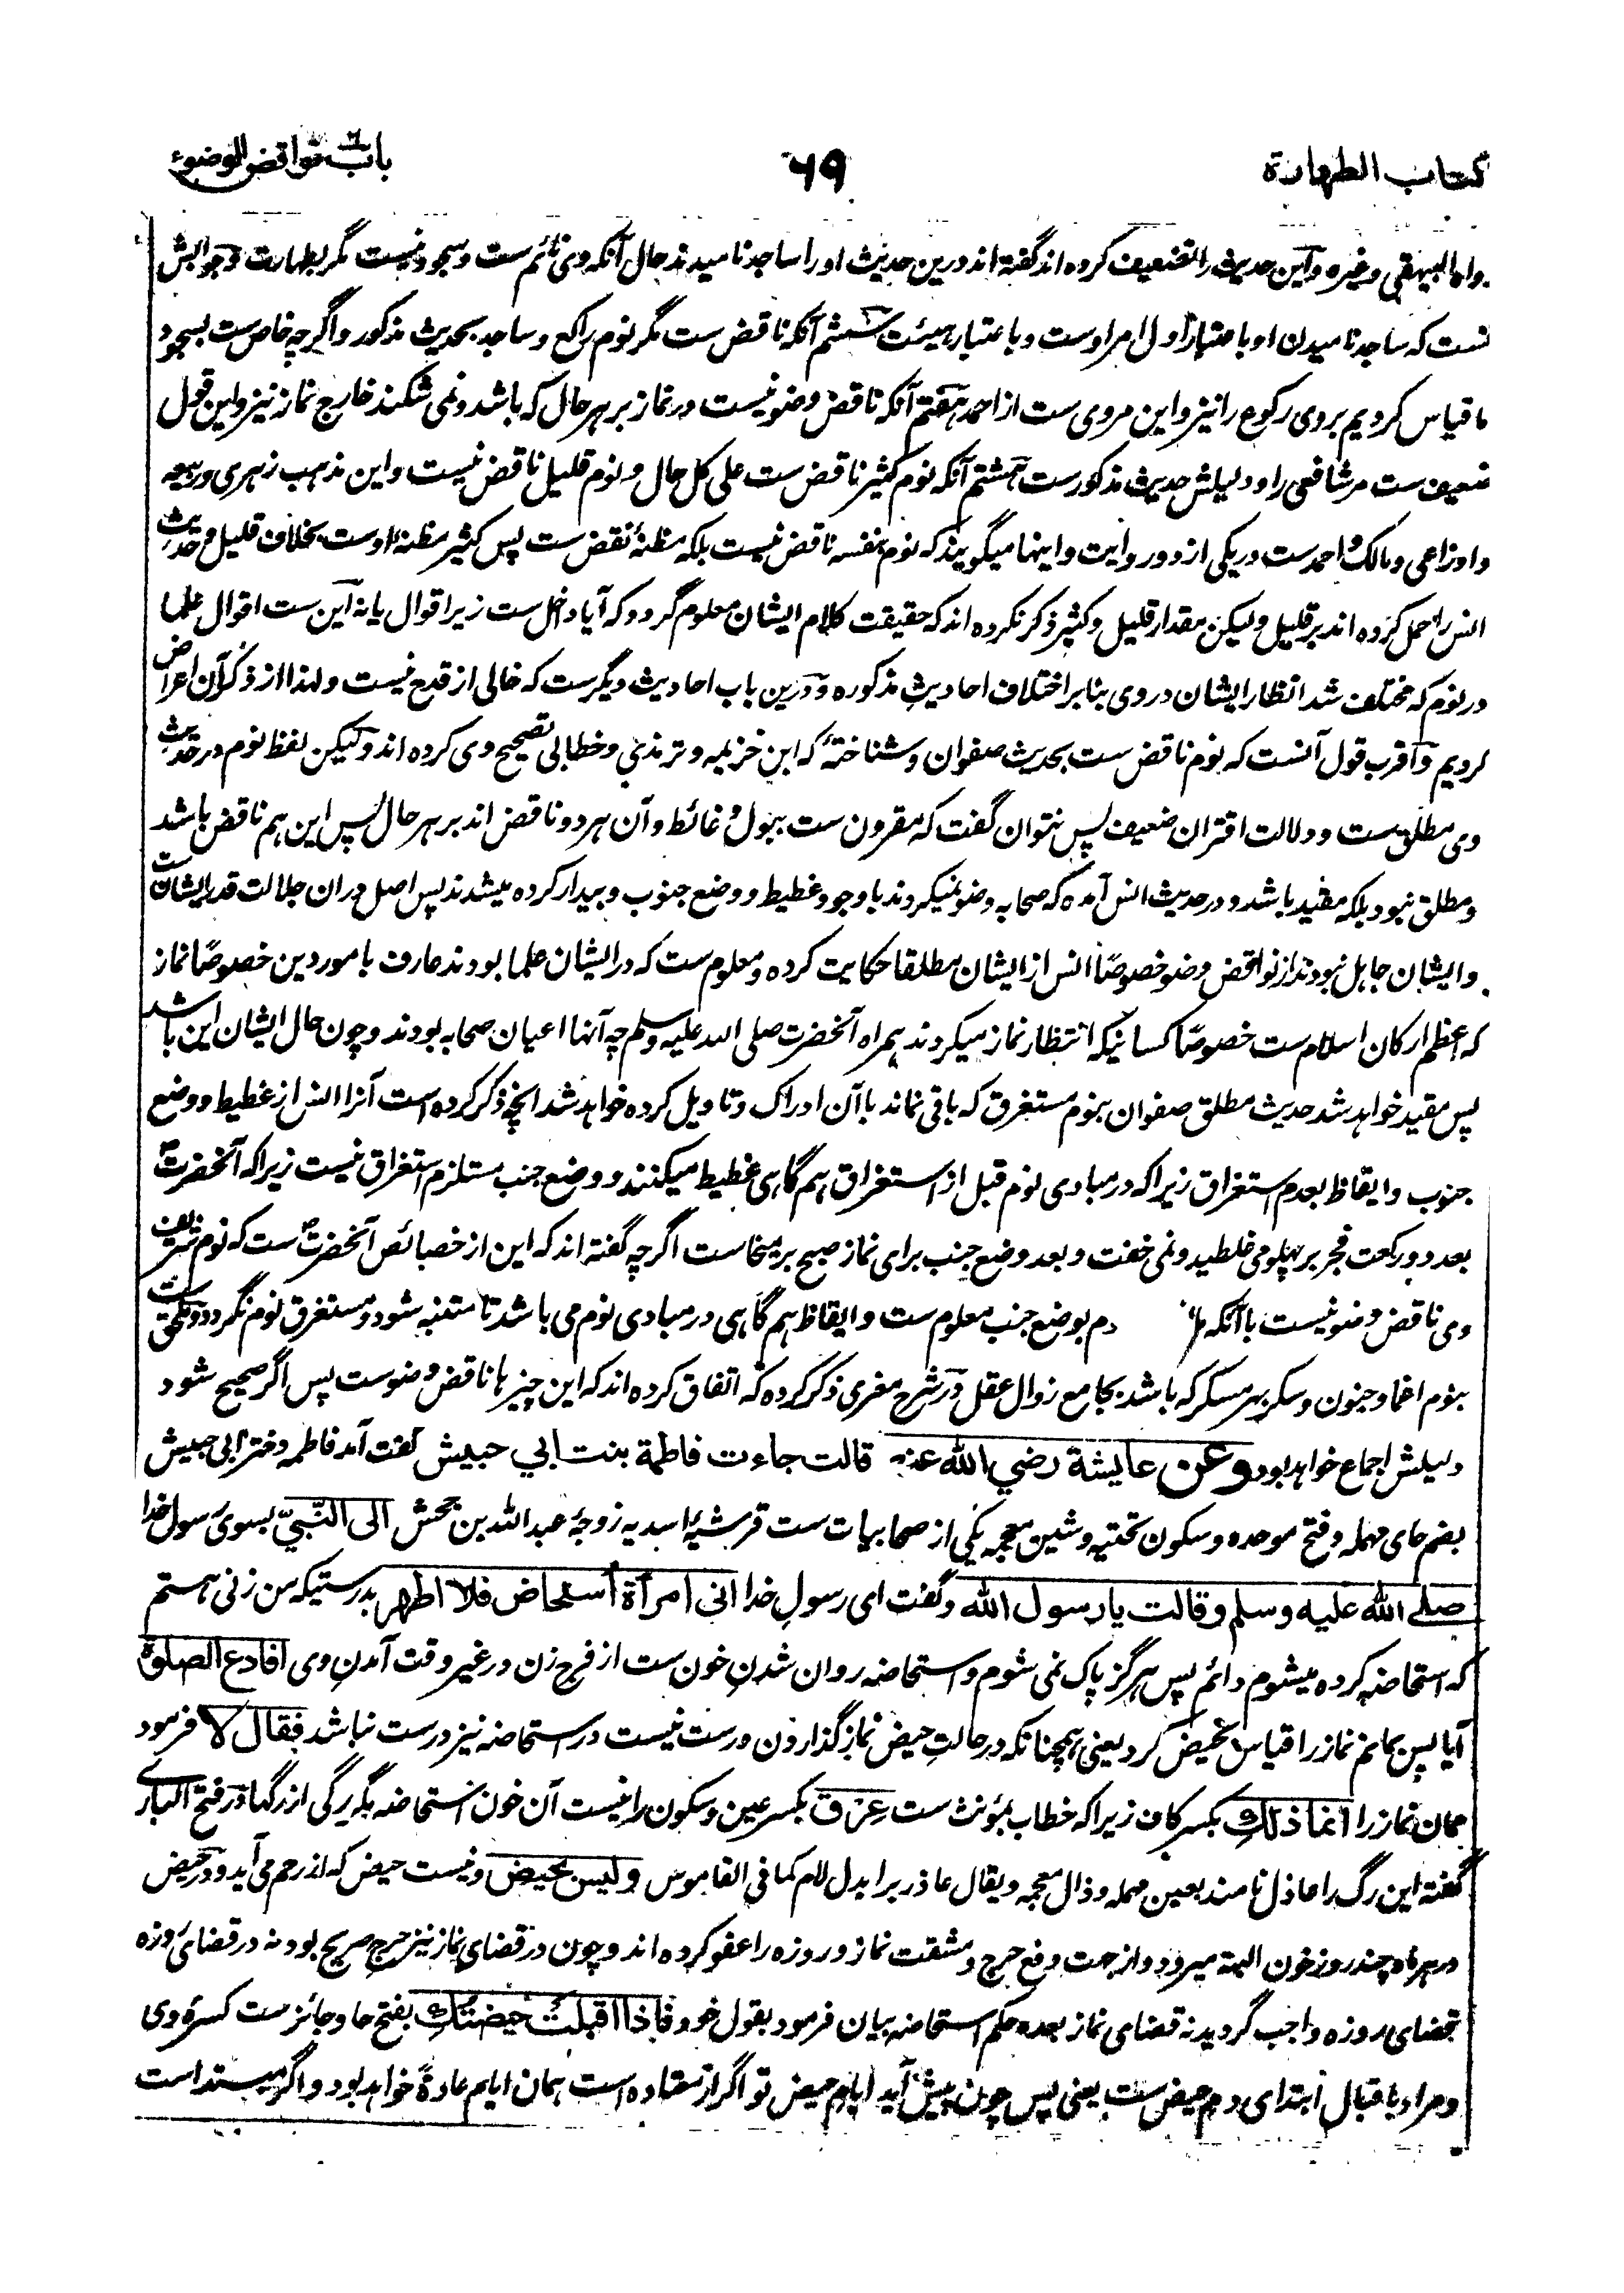 كتاب الطهارة ٦٩ باب نواقض الوضوء
رواهما البیهقی وغیره وآین حدیث را تضعیف کرده اند گفته اند درین حدیث او را ساجد نامیدند حال آنکه وی نائم ست و سجود نیست مگر بطهارت وجوابش
نست که ساجد نامیدن او باعتبار اول امر اوست و باعتبار هیئت ششم آنکه ناقض ست مگر نوم راکع و ساجد بحدیث مذکور و اگرچه خاص ست بسجود
ما قیاس کردیم بروی رکوع را نیز و این مروی ست از احمد هفتم آنکه ناقض وضو نیست در نماز بر هر حال که باشد و نمی شکند خارج نماز نیز و این قول
ضعیف ست مر شافعی را و دلیلش حدیث مذکور ست هشتم آنکه نوم کثیر ناقض ست علی کل حال و نوم قلیل ناقض نیست و این مذهب زهری و ربیعه
و اوزاعی و مالک و احمد ست در یکی از دو روایت و اینها میگویند که نوم بنفسه ناقض نیست بلکه مظنۂ نقض ست پس کثیر مظنۂ اوست بخلاف قلیل و حدیث
انس را حمل کرده اند بر قلیل ولیکن مقدار قلیل و کثیر ذکر نکرده اند که حقیقت کلام ایشان معلوم گردد که آیا داخل ست زیر اقوال یا نه آین ست اقوال علما
در نوم که مختلف شد انظار ایشان در وی بنا بر اختلاف احادیث مذکوره و درین باب احادیث دیگرست که خالی از قدح نیست و لهذا از ذکر آن اعراض
کردیم و اقرب قول آنست که نوم ناقض ست بحدیث صفوان و شناختۂ که ابن خزیمه و ترمذی و خطابی تصحیح وی کرده اند ولیکن لفظ نوم در حدیث
وی مطلق ست و دلالت اقتران ضعیف پس نتوان گفت که مقرون ست ببول و غائط و آن هر دو ناقض اند بر هر حال پس این هم ناقض باشد
و مطلق نبود بلکه مقید باشد و در حدیث انس آمده که صحابه وضو نمیکردند با وجود غطیط و وضع جنوب و بیدار کرده میشدند پس اصل دران جلالت قدر ایشان ست
و ایشان جاهل نبودند از نواقض وضو خصوصًا انس از ایشان مطلقا حکایت کرده و معلوم ست که در ایشان علما بودند عارف بامور دین خصوصًا نماز
که اعظم ارکان اسلام ست خصوصًا کسانیکه انتظار نماز میکردند همراه آنحضرت صلی الله علیه وسلم چه آنها اعیان صحابه بودند و چون حال ایشان این باشد
پس مقید خواهد شد حدیث مطلق صفوان بنوم مستغرق که باقی نماند با آن ادراک و تاویل کرده خواهد شد انچه ذکر کرده است آنرا انس از غطیط و وضع
جنوب و ایقاظ بعدم استغراق زیرا که در مبادی نوم قبل از استغراق هم گاهی غطیط میکنند و وضع جنب مستلزم استغراق نیست زیرا که آنحضرت
بعد دو رکعت فجر بر پهلو می غلطید و نمی خفت و بعد وضع جنب برای نماز صبح بر میخاست اگرچه گفته اند که این از خصائص آنحضرت ست که نوم شریف
وی ناقض وضو نیست با آنکه دم بوضع جنب معلوم ست و ایقاظ هم گاهی در مبادی نوم می باشد تا متنبه شود و مستغرق نوم نگردد و ملحق ست
بنوم اغما و جنون و سکر بهر مسکر که باشد بجامع زوال عقل در شرح مغربی ذکر کرده که اتفاق کرده اند که این چیزها ناقض وضوست پس اگر صحیح شود
دلیلش اجماع خواهد بود وعن عايشة رضي الله عنه قالت جاءت فاطمة بنت ابي حبيش گفت آمد فاطمه دختر ابی حبیش
بضم حای مهمله و فتح موحده و سکون تحتیه و شین معجمه یکی از صحابیات ست قرشیۂ اسدیه زوجۂ عبدالله بن جحش الى النّبيّ بسوی رسول خدا
صلے الله عليه وسلم وقالت يا رسول الله و گفت ای رسول خدا اني امرأة أستحاض فلا اطهر بدرستیکه من زنی هستم
که استحاضه کرده میشوم دائم پس هرگز پاک نمی شوم و استحاضه روان شدن خون ست از فرج زن در غیر وقت آمدن وی افادع الصلوة
آیا پس بمانم نماز را قیاس بحیض کرد یعنی همچنانکه در حالت حیض نماز گذاردن درست نیست در استحاضه نیز درست نباشد فقال لا فرمود
ممان نماز را انما ذلكِ بکسر کاف زیرا که خطاب بمؤنث ست عِرْق بکسر عین و سکون را نیست آن خون استحاضه مگر رگی از رگها در فتح الباری
گفته این رگ را عاذل نامند بعین مهمله و ذال معجمه و یقال عاذر برا بدل لام کما فی القاموس وليس بحيض و نیست حیض که از رحم می آید و در حیض
در هر ماه چند روز خون البته میرود و از جهت دفع حرج و مشقت نماز و روزه را عفو کرده اند و چون در قضای نماز نیز حرج صریح بود نه در قضای روزه
قضای روزه واجب گردید نه قضای نماز بعده حکم استحاضه بیان فرمود بقول خود فاذا اقبلتْ حيضتُكِ بفتح حا و جائز ست کسرۂ وی
و مراد باقبال ابتدای دم حیض ست یعنی پس چون پیش آید ایام حیض تو اگر از معتاده است همان ایام عادة خواهد بود و اگر مبتداست